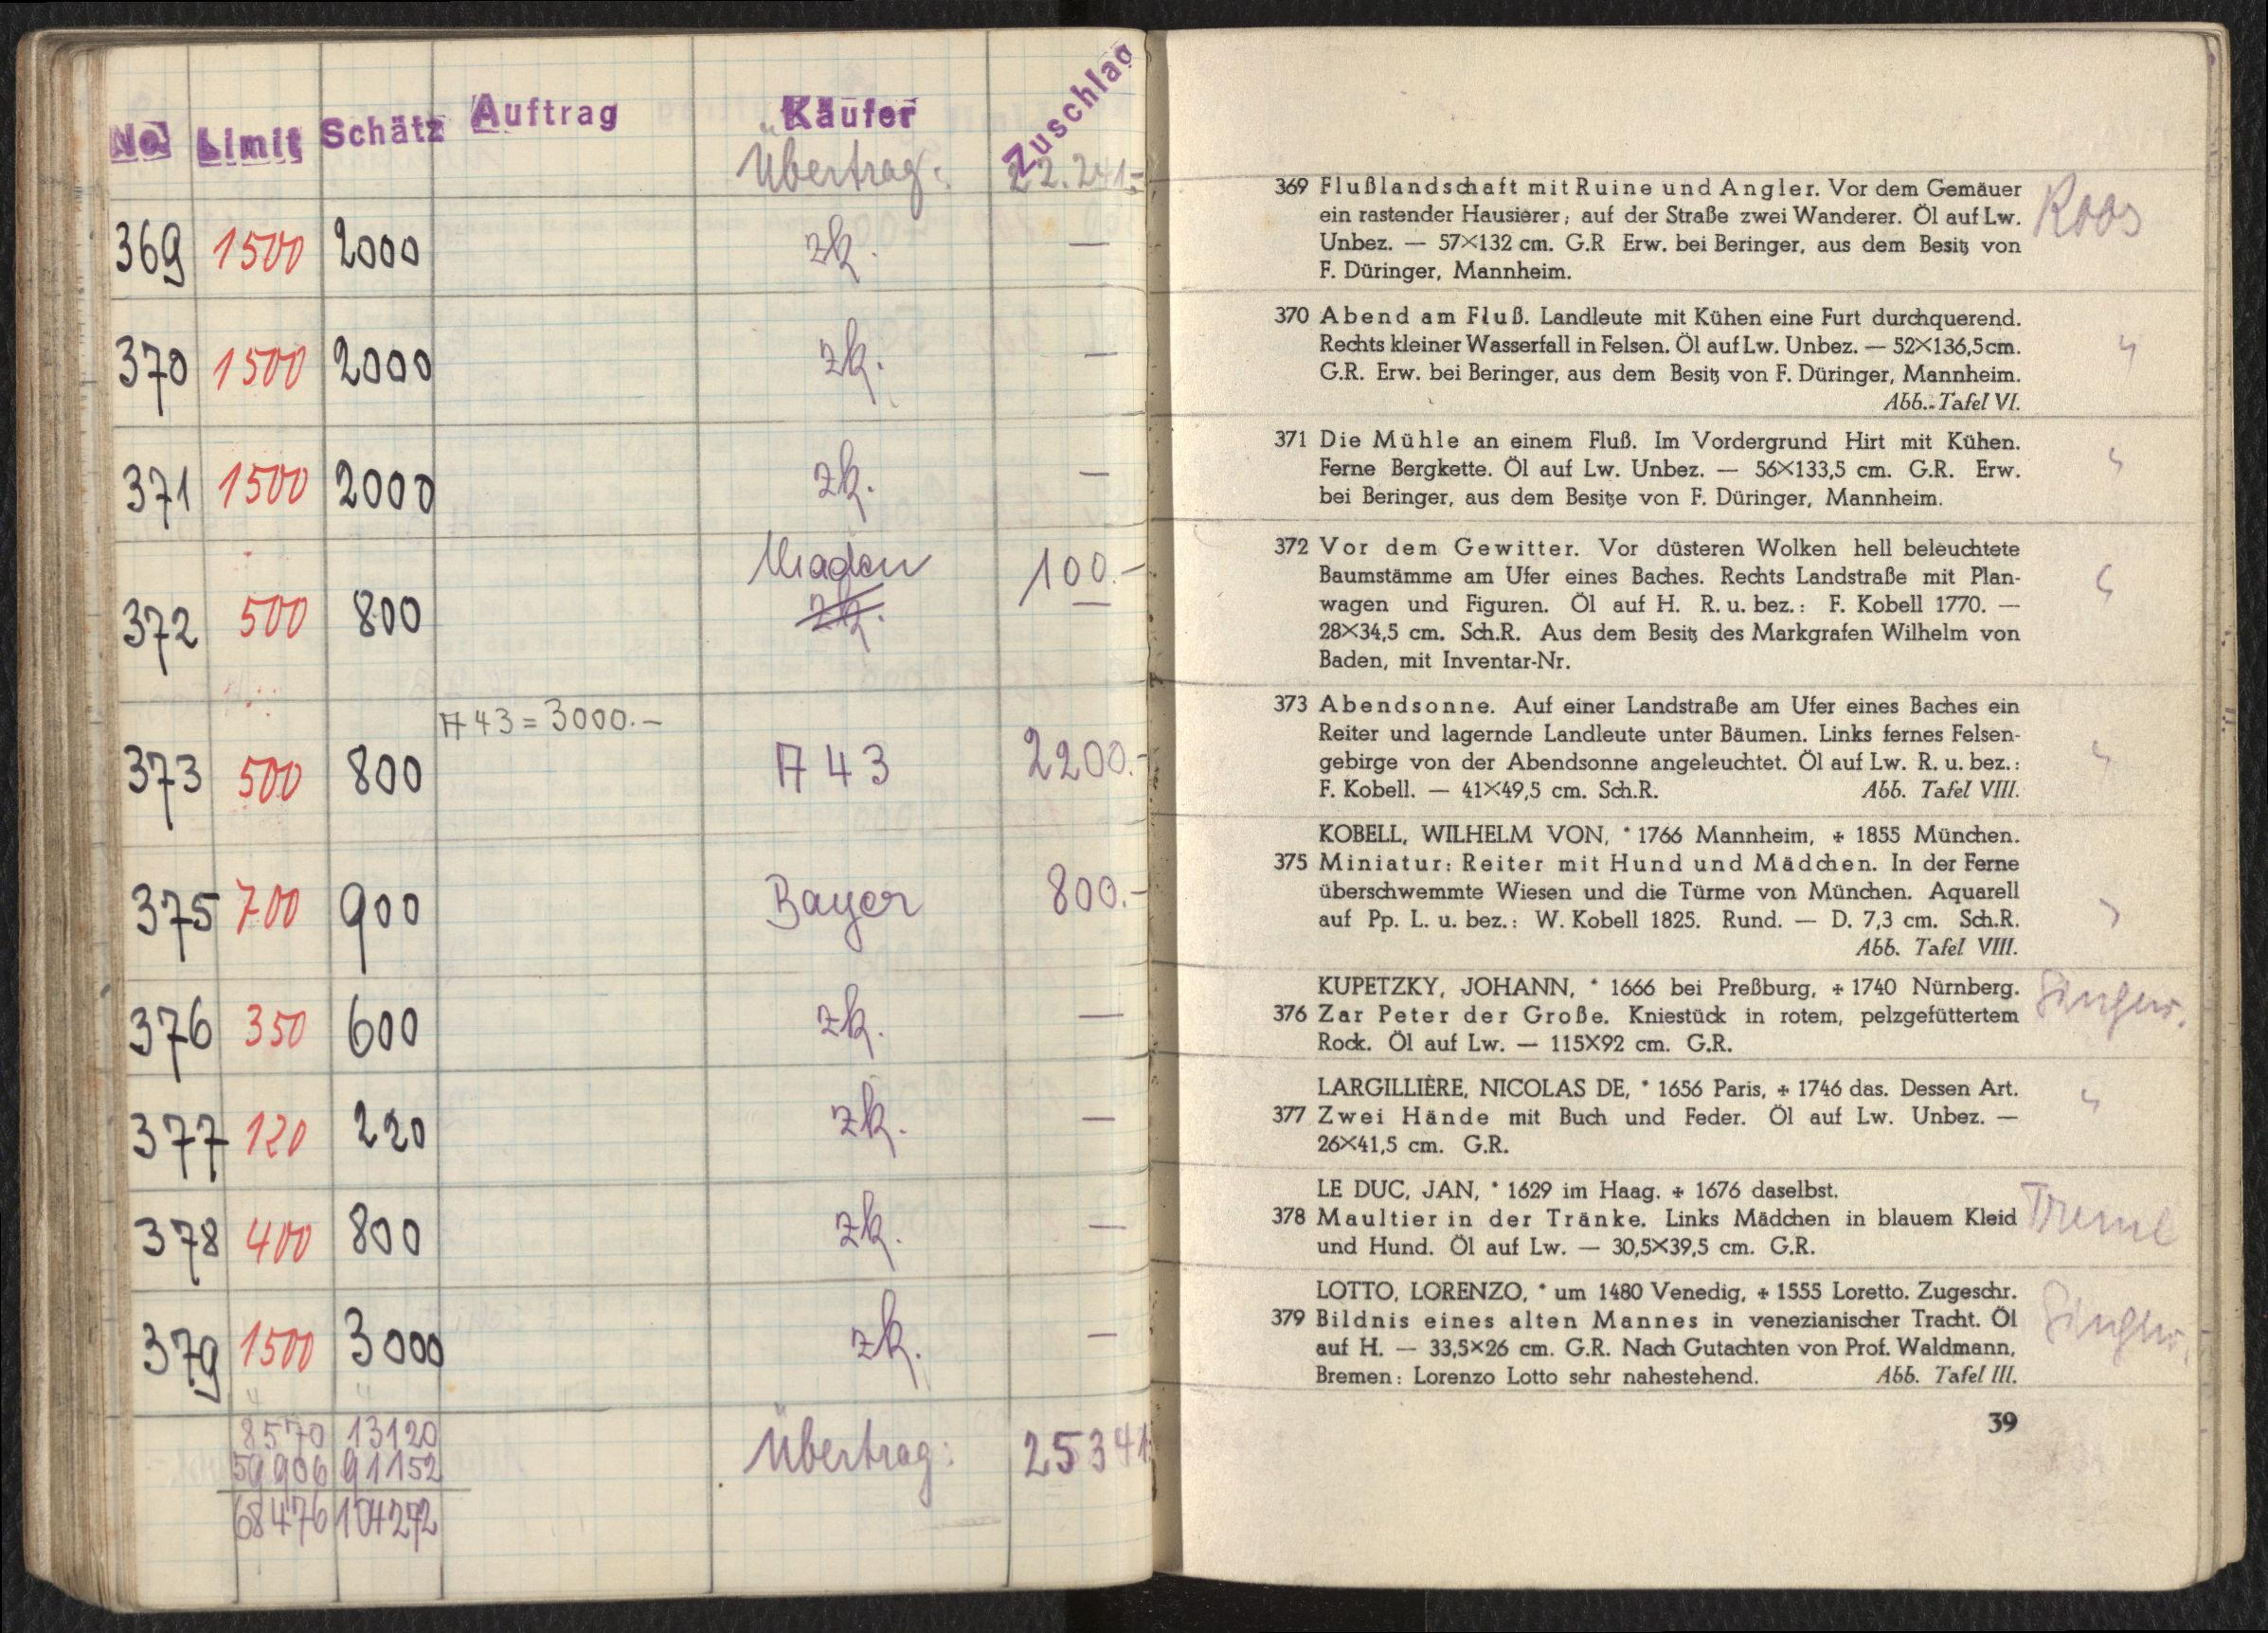 No Limit Schätz Auftrag Käufer Zuschlag
Übertrag: 22.241.-
369 1500 2000 zk. —
370 1500 2000 zk. —
371 1500 2000 zk. —
372 500 800 100.-
zk. —
A 43 = 3000.-
373 500 800 A 43 2200.-
375 700 900 Bayer 800.-
376 350 600 zk. —
377 120 220 zk. —
378 400 800 zk. —
379 1500 3000 zk. —
8570 13120 Übertrag: 25341.
59906 91152
68476 104272
369 Flußlandschaft mit Ruine und Angler. Vor dem Gemäuer Roos
ein rastender Hausierer; auf der Straße zwei Wanderer. Öl auf Lw.
Unbez. — 57×132 cm. G.R Erw. bei Beringer, aus dem Besitz von
F. Düringer, Mannheim.
370 Abend am Fluß. Landleute mit Kühen eine Furt durchquerend.
Rechts kleiner Wasserfall in Felsen. Öl auf Lw. Unbez. — 52×136,5 cm.
G.R. Erw. bei Beringer, aus dem Besitz von F. Düringer, Mannheim.
Abb. Tafel VI.
371 Die Mühle an einem Fluß. Im Vordergrund Hirt mit Kühen.
Ferne Bergkette. Öl auf Lw. Unbez. — 56×133,5 cm. G.R. Erw.
bei Beringer, aus dem Besitze von F. Düringer, Mannheim.
372 Vor dem Gewitter. Vor düsteren Wolken hell beleuchtete
Baumstämme am Ufer eines Baches. Rechts Landstraße mit Plan-
wagen und Figuren. Öl auf H. R. u. bez.: F. Kobell 1770. —
28×34,5 cm. Sch.R. Aus dem Besitz des Markgrafen Wilhelm von
Baden, mit Inventar-Nr.
373 Abendsonne. Auf einer Landstraße am Ufer eines Baches ein
Reiter und lagernde Landleute unter Bäumen. Links fernes Felsen-
gebirge von der Abendsonne angeleuchtet. Öl auf Lw. R. u. bez.:
F. Kobell. — 41×49,5 cm. Sch.R. Abb. Tafel VIII.
KOBELL, WILHELM VON, * 1766 Mannheim, ✢ 1855 München.
375 Miniatur: Reiter mit Hund und Mädchen. In der Ferne
überschwemmte Wiesen und die Türme von München. Aquarell
auf Pp. L. u. bez.: W. Kobell 1825. Rund. — D. 7,3 cm. Sch.R.
Abb. Tafel VIII.
KUPETZKY, JOHANN, * 1666 bei Preßburg, ✢ 1740 Nürnberg.
376 Zar Peter der Große. Kniestück in rotem, pelzgefüttertem
Rock. Öl auf Lw. — 115×92 cm. G.R.
LARGILLIÈRE, NICOLAS DE, * 1656 Paris, ✢ 1746 das. Dessen Art.
377 Zwei Hände mit Buch und Feder. Öl auf Lw. Unbez. —
26×41,5 cm. G.R.
LE DUC, JAN, * 1629 im Haag. ✢ 1676 daselbst.
378 Maultier in der Tränke. Links Mädchen in blauem Kleid
und Hund. Öl auf Lw. — 30,5×39,5 cm. G.R.
LOTTO, LORENZO, * um 1480 Venedig, ✢ 1555 Loretto. Zugeschr.
379 Bildnis eines alten Mannes in venezianischer Tracht. Öl
auf H. — 33,5×26 cm. G.R. Nach Gutachten von Prof. Waldmann,
Bremen: Lorenzo Lotto sehr nahestehend. Abb. Tafel III.
39